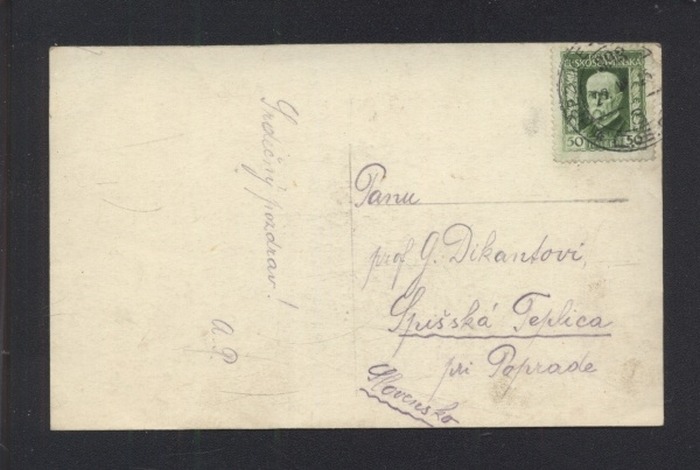 Srdečný pozdrav!
A. P.
ČESKOSLOVENSKÁ
50 50
Panu
prof. G. Dikantovi,
Spišská Teplica
pri Poprade
Slovensko